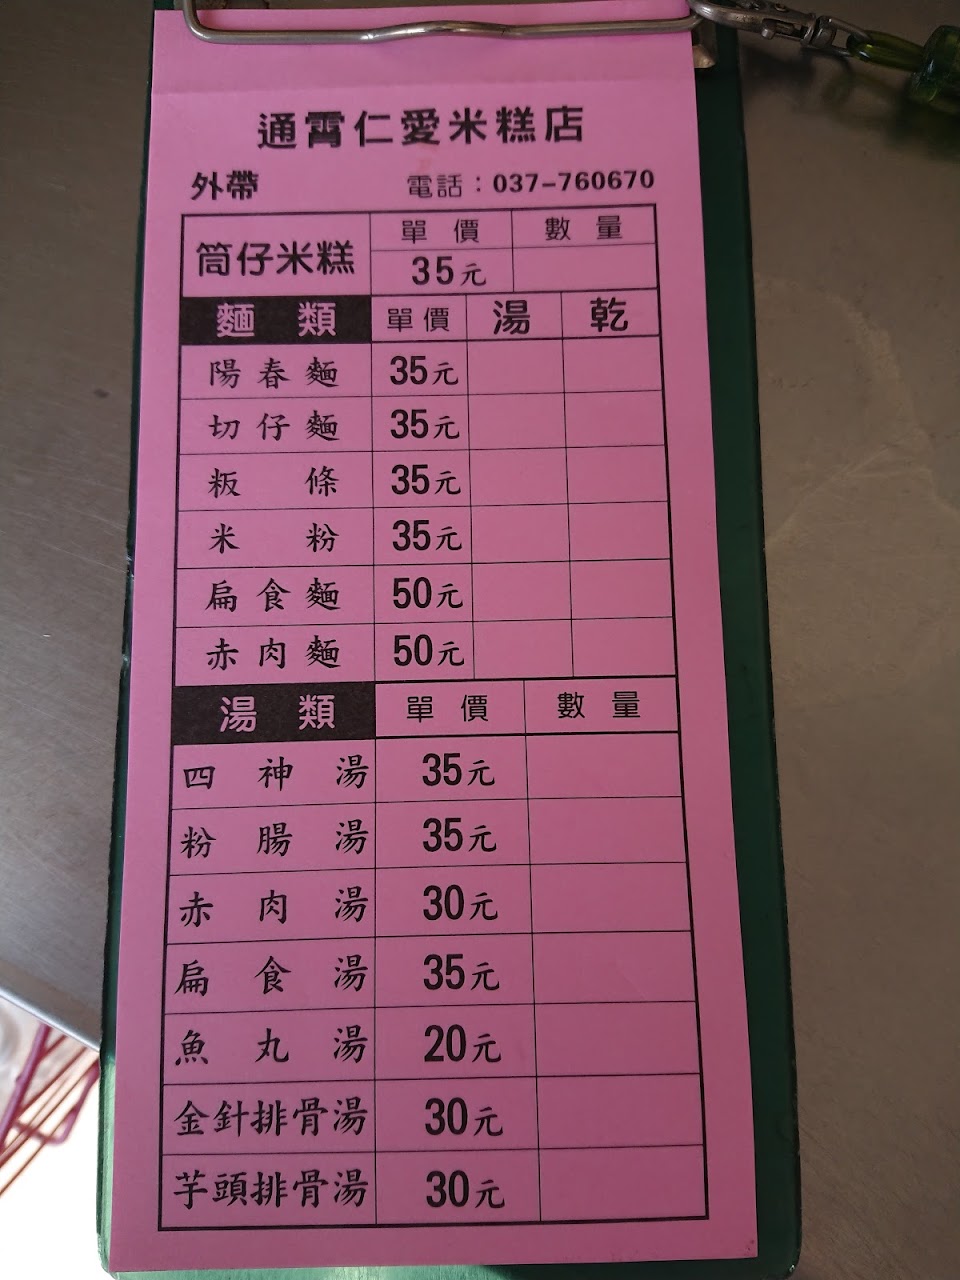 通霄仁愛米糕店
外帶 電話：037-760670
筒仔米糕 單價 數量
35元
麵類 單價 湯 乾
陽春麵 35元
切仔麵 35元
粄條 35元
米粉 35元
扁食麵 50元
赤肉麵 50元
湯類 單價 數量
四神湯 35元
粉腸湯 35元
赤肉湯 30元
扁食湯 35元
魚丸湯 20元
金針排骨湯 30元
芋頭排骨湯 30元